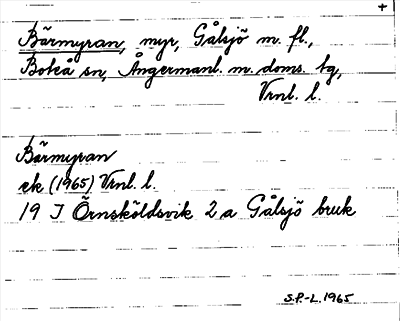 +
Bärmyran, myr, Gålsjö m. fl.,
Boteå sn, Ångermanl. m. doms. tg,
Vrnl. l.
Bärmyran
ek (1965) Vrnl. l.
19 J Örnsköldsvik 2 a Gålsjö bruk
S.P.-L. 1965